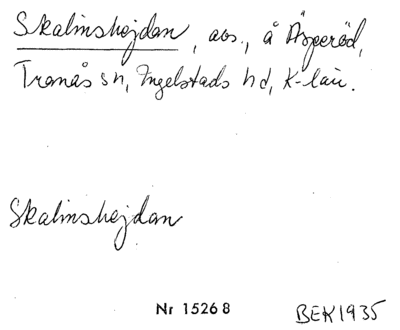 Skalinshejdan, avs., å Äsperöd,
Tranås sn, Ingelstads hd, K-län.
Skalinshejdan
Nr 15268
BEK1935